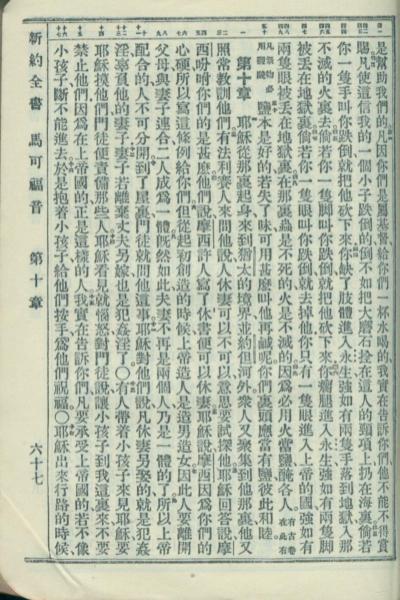 是幫助我們的凡因你們是屬基督給你們一杯水喝的我實在告訴你們他不能不得賞
賜凡使這信我的一個小子跌倒的倒不如把大磨石拴在這人的頸項上扔在海裏倘若
你一隻手叫你跌倒就把他砍下來你缺了肢體進入永生強如有兩隻手落到地獄入那
不滅的火裏去倘若你一隻脚叫你跌倒就把他砍下來你瘸腿進入永生強如有兩隻脚
被丟在地獄裏倘若你一隻眼叫你跌倒就去掉他你只有一隻眼進入上帝的國強如有
兩隻眼被丟在地獄裏在那裏蟲是不死的火是不滅的因爲必用火當鹽醃各人 有古卷在此有
凡祭物必用鹽醃 鹽本是好的若失了味可用甚麽叫他再鹹呢你們裏頭應當有鹽彼此和睦
第十章 耶穌從那裏起身來到猶太的境界並約但河外衆人又聚集到他那裏他又
照常教訓他們有法利賽人來問他說人休妻可以不可以意思要試探他耶穌回答說摩
西吩咐你們的是甚麽他們說摩西許人寫了休書便可以休妻耶穌說摩西因爲你們的
心硬所以寫這條例給你們但從起初創造的時候上帝造人是造男造女因此人要離開
父母與妻子連合二人成爲一體旣然如此夫妻不再是兩個人乃是一體的了所以上帝
配合的人不可分開到了屋裏門徒就問他這事耶穌對他們說凡休妻另娶的就是犯姦
淫辜負他的妻子妻子若離棄丈夫另嫁也是犯姦淫了○有人帶着小孩子來見耶穌要
耶穌摸他們門徒便責備那些人耶穌看見就惱怒對門徒說讓小孩子到我這裏來不要
禁止他們因爲在上帝國的正是這樣的人我實在告訴你們凡要承受上帝國的若不像
小孩子斷不能進去於是抱着小孩子給他們按手爲他們祝福○耶穌出來行路的時候
新約全書 馬可福音 第十章 六十七